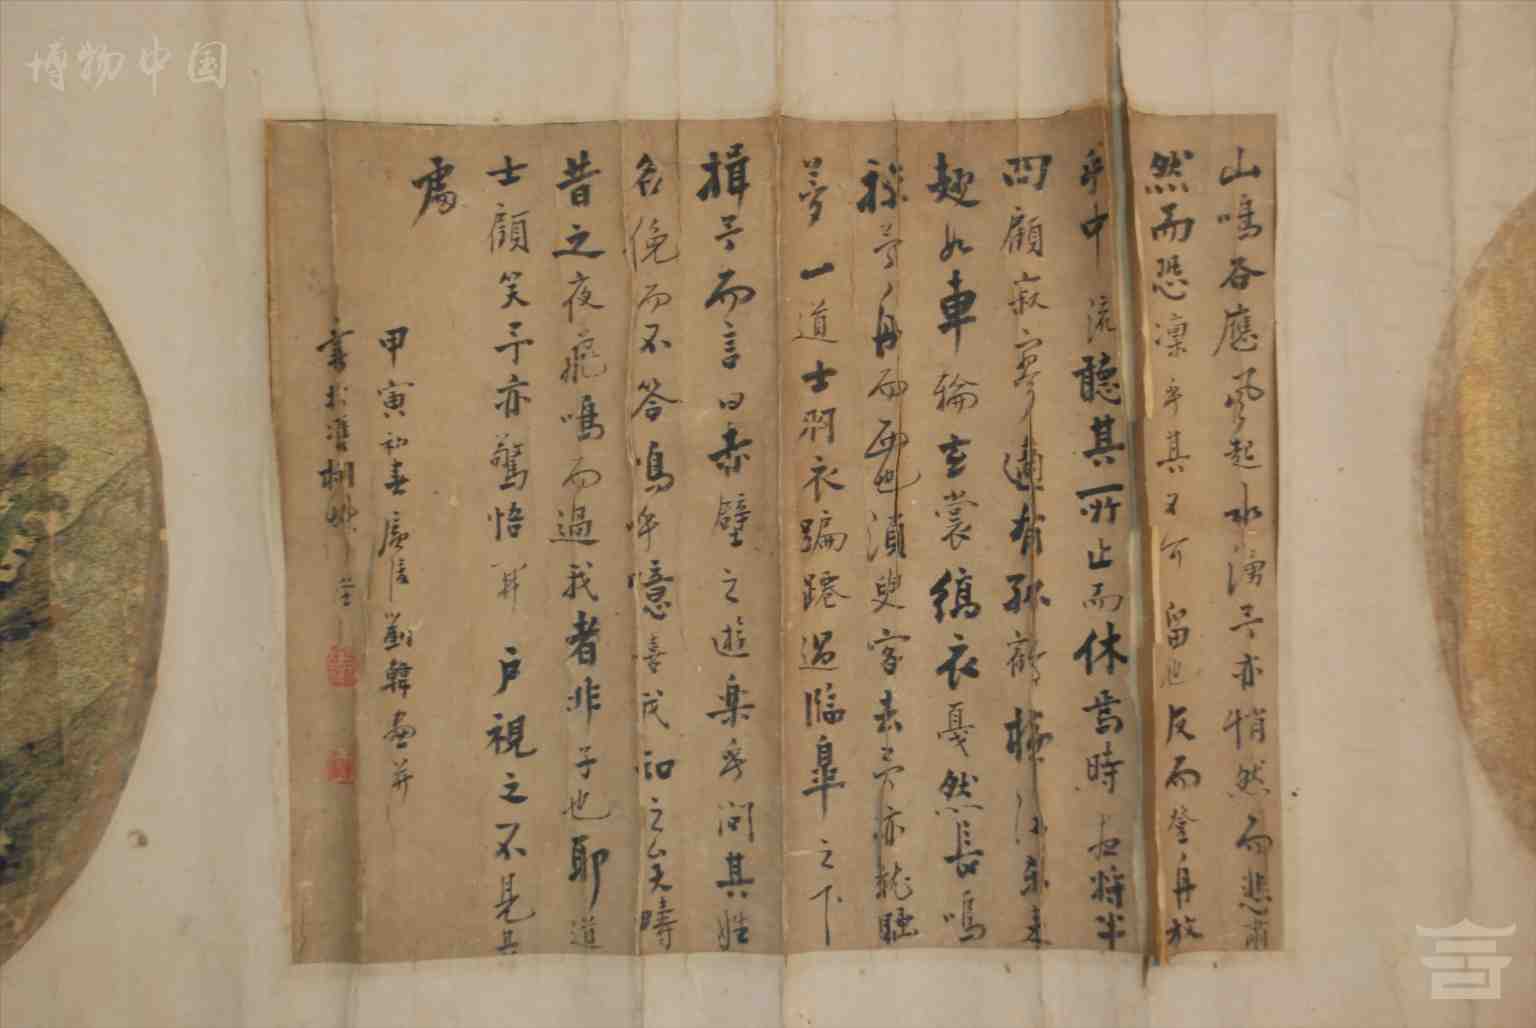 博物中国
山鳴谷應風起水湧予亦悄然而悲肅
然而恐凜乎其不可留也反而登舟放
乎中流聽其所止而休焉時夜將半
四顧寂寥適有孤鶴橫江東來
翅如車輪玄裳縞衣戛然長鳴
掠予舟而西也須臾客去予亦就睡
夢一道士羽衣蹁躚過臨皋之下
揖予而言曰赤壁之遊樂乎問其姓
名俛而不答嗚呼噫嘻我知之矣疇
昔之夜飛鳴而過我者非子也耶道
士顧笑予亦驚悟開戶視之不見其
處
甲寅初春畫并
書於